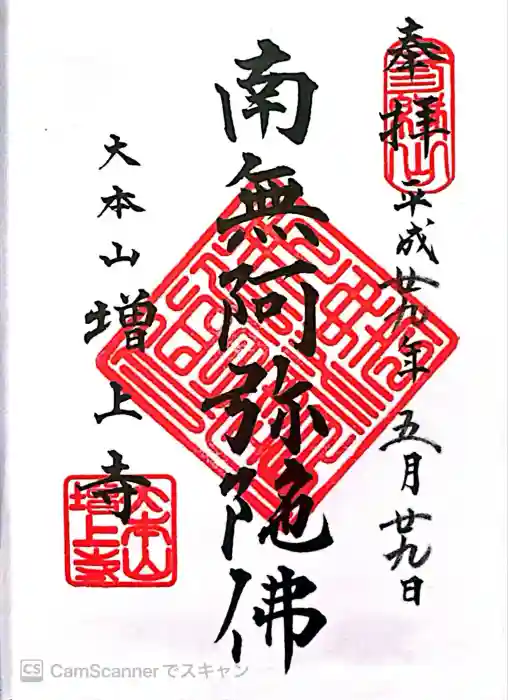 奉拝
平成廿九年五月廿九日
南無阿弥陀佛
大本山増上寺
大本山
増上寺
CS CamScannerでスキャン